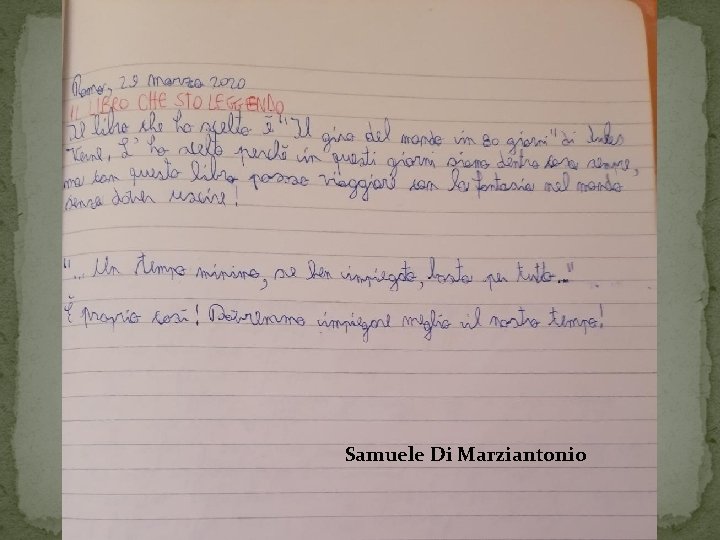 Roma, 29 marzo 2020
IL LIBRO CHE STO LEGGENDO
Il libro che ho scelto è "Il giro del mondo in 80 giorni" di Jules
Verne. L'ho scelto perchè in questi giorni siamo dentro casa sempre,
ma con questo libro posso viaggiare con la fantasia nel mondo
senza dover uscire!
"... Un tempo minimo, se ben impiegato, basta per tutto..."
È proprio così! Dovremmo impiegare meglio il nostro tempo!
Samuele Di Marziantonio